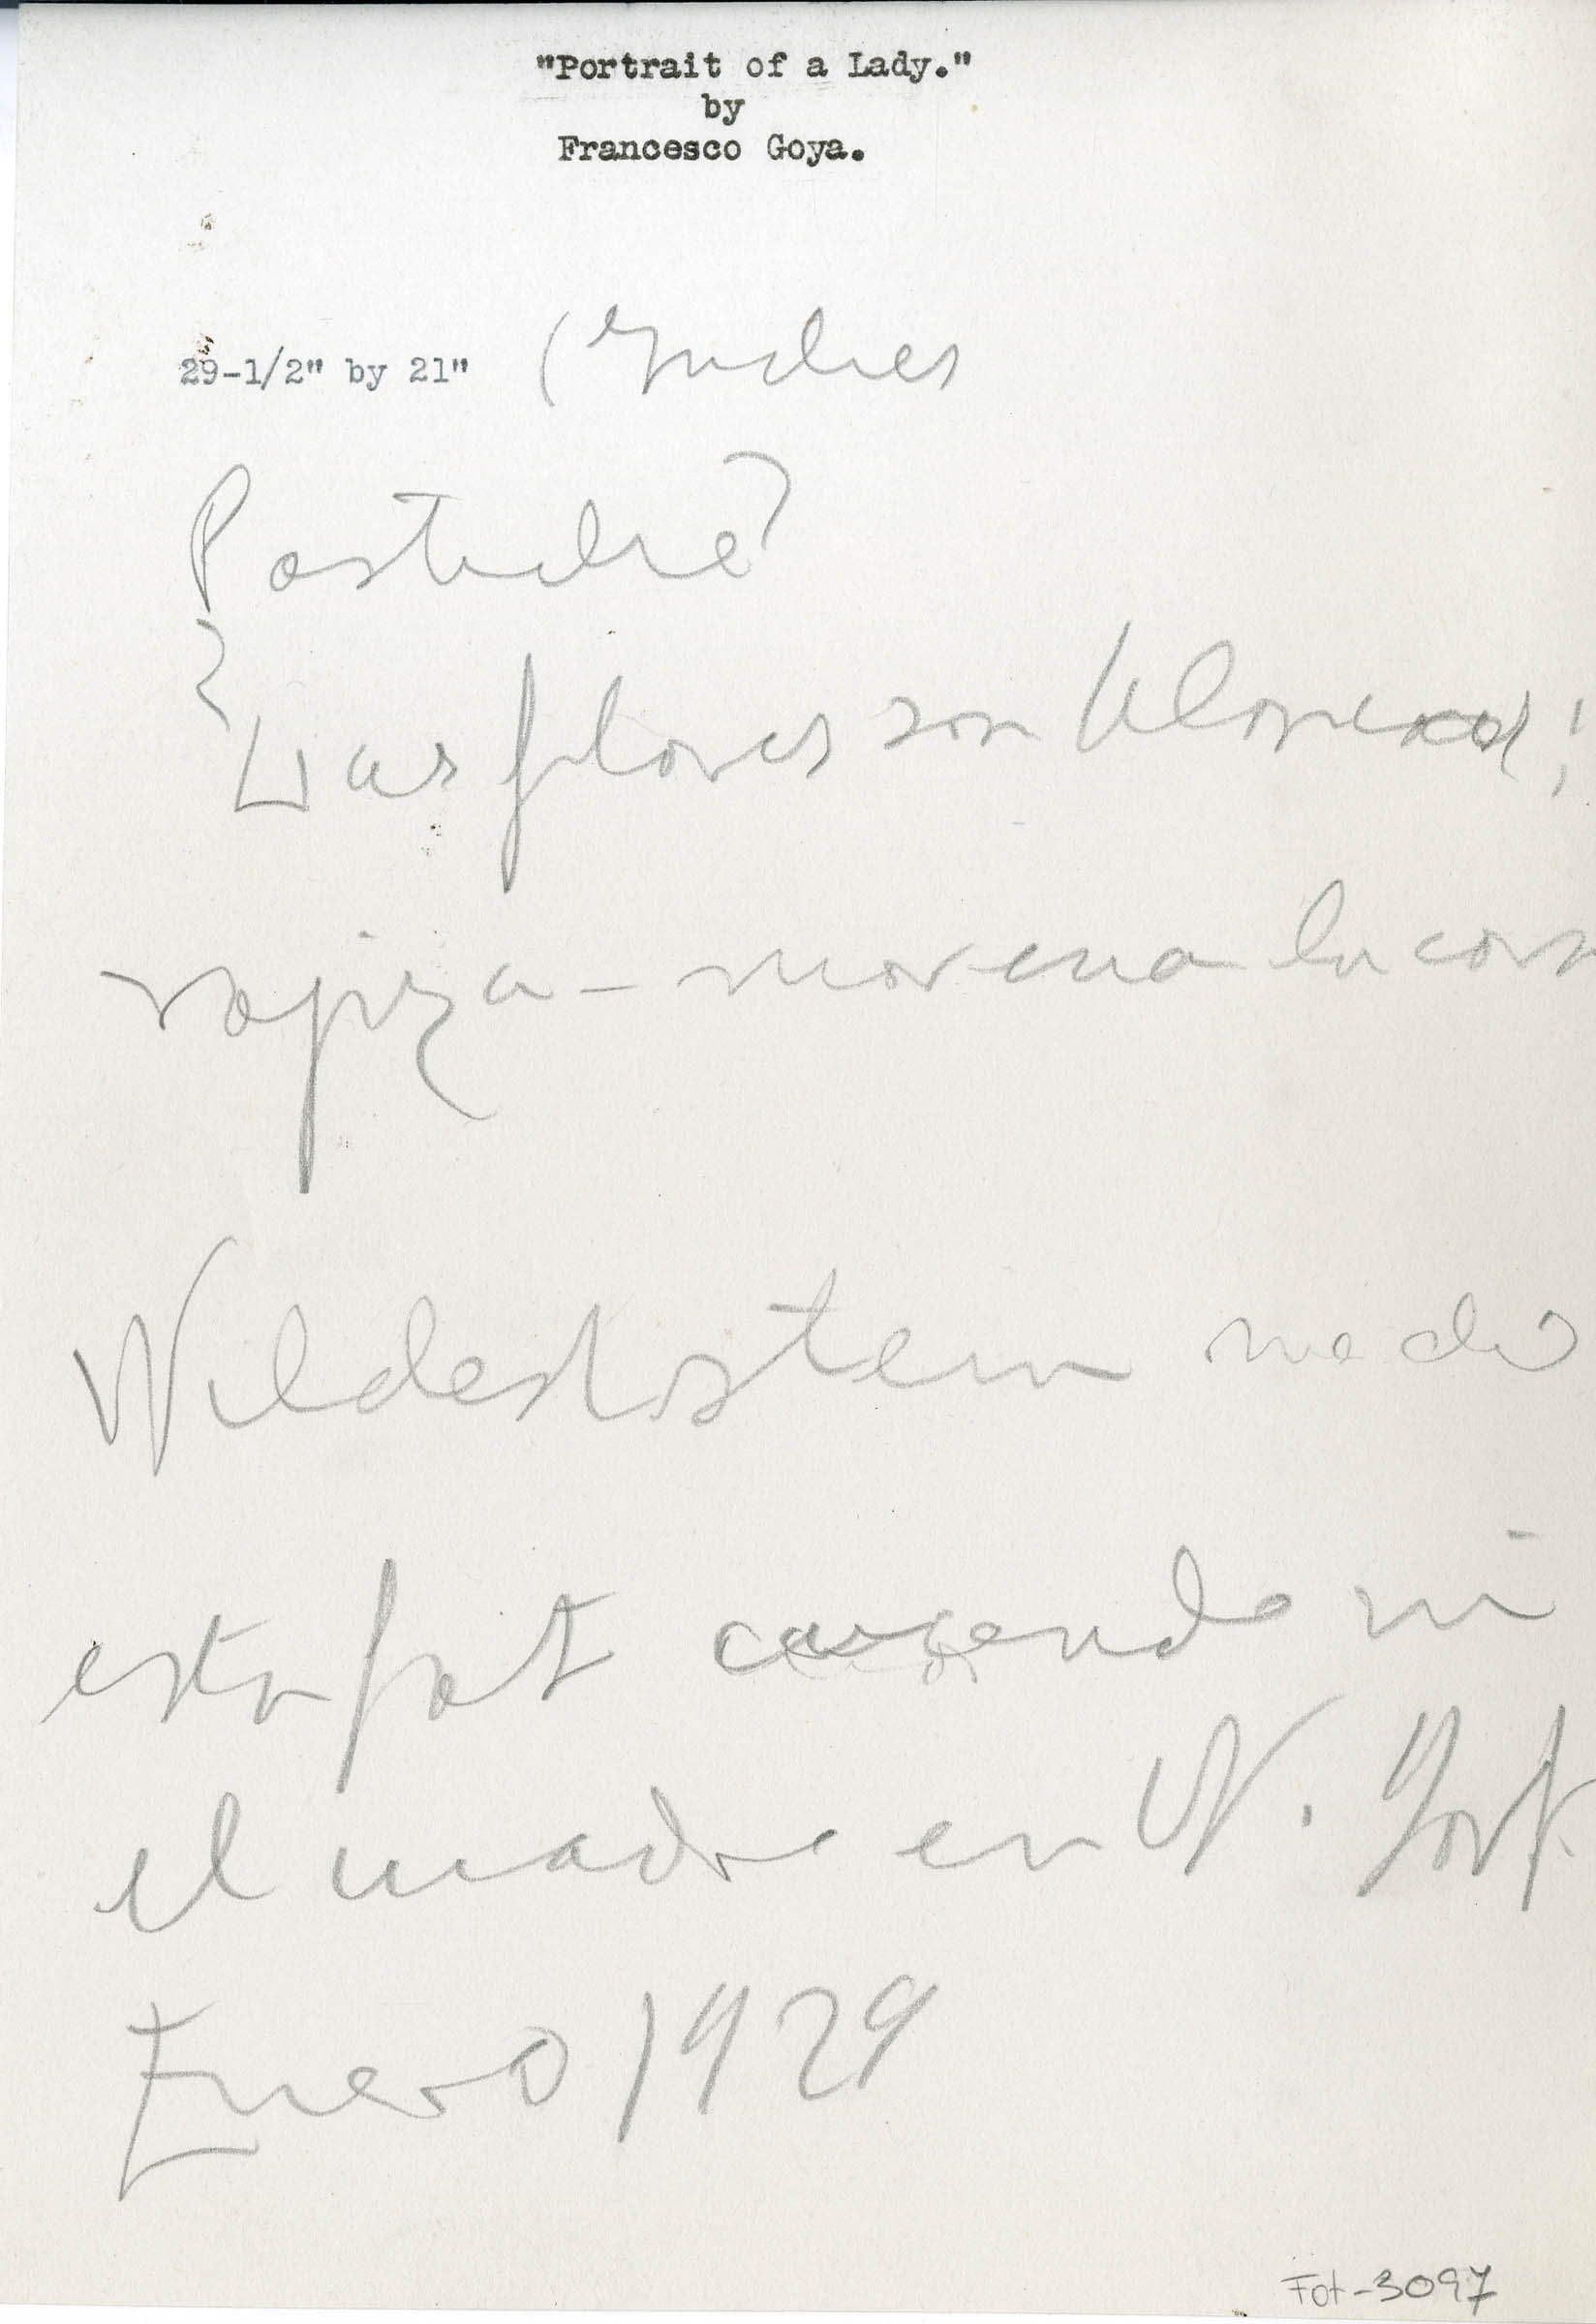 "Portrait of a Lady."
by
Francesco Goya.
29-1/2" by 21" (
Las flores son blancas;
rojiza - morena la
Wildesstein me dio
esta fot cuando vi
el cuadro en N. York
Enero 1929
Fot-3097